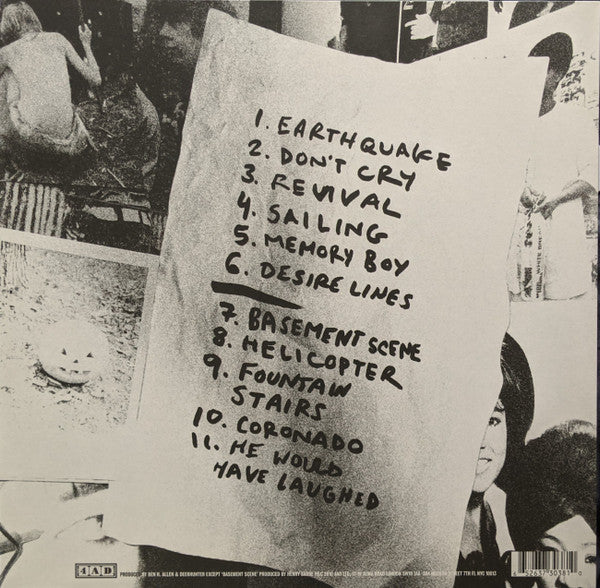 1. EARTHQUAKE
2. DON'T CRY
3. REVIVAL
4. SAILING
5. MEMORY BOY
6. DESIRE LINES
7. BASEMENT SCENE
8. HELICOPTER
9. FOUNTAIN
STAIRS
10. CORONADO
11. HE WOULD
HAVE LAUGHED
4AD
PRODUCED BY BEN H. ALLEN & DEERHUNTER EXCEPT "BASEMENT SCENE" PRODUCED BY HENRY